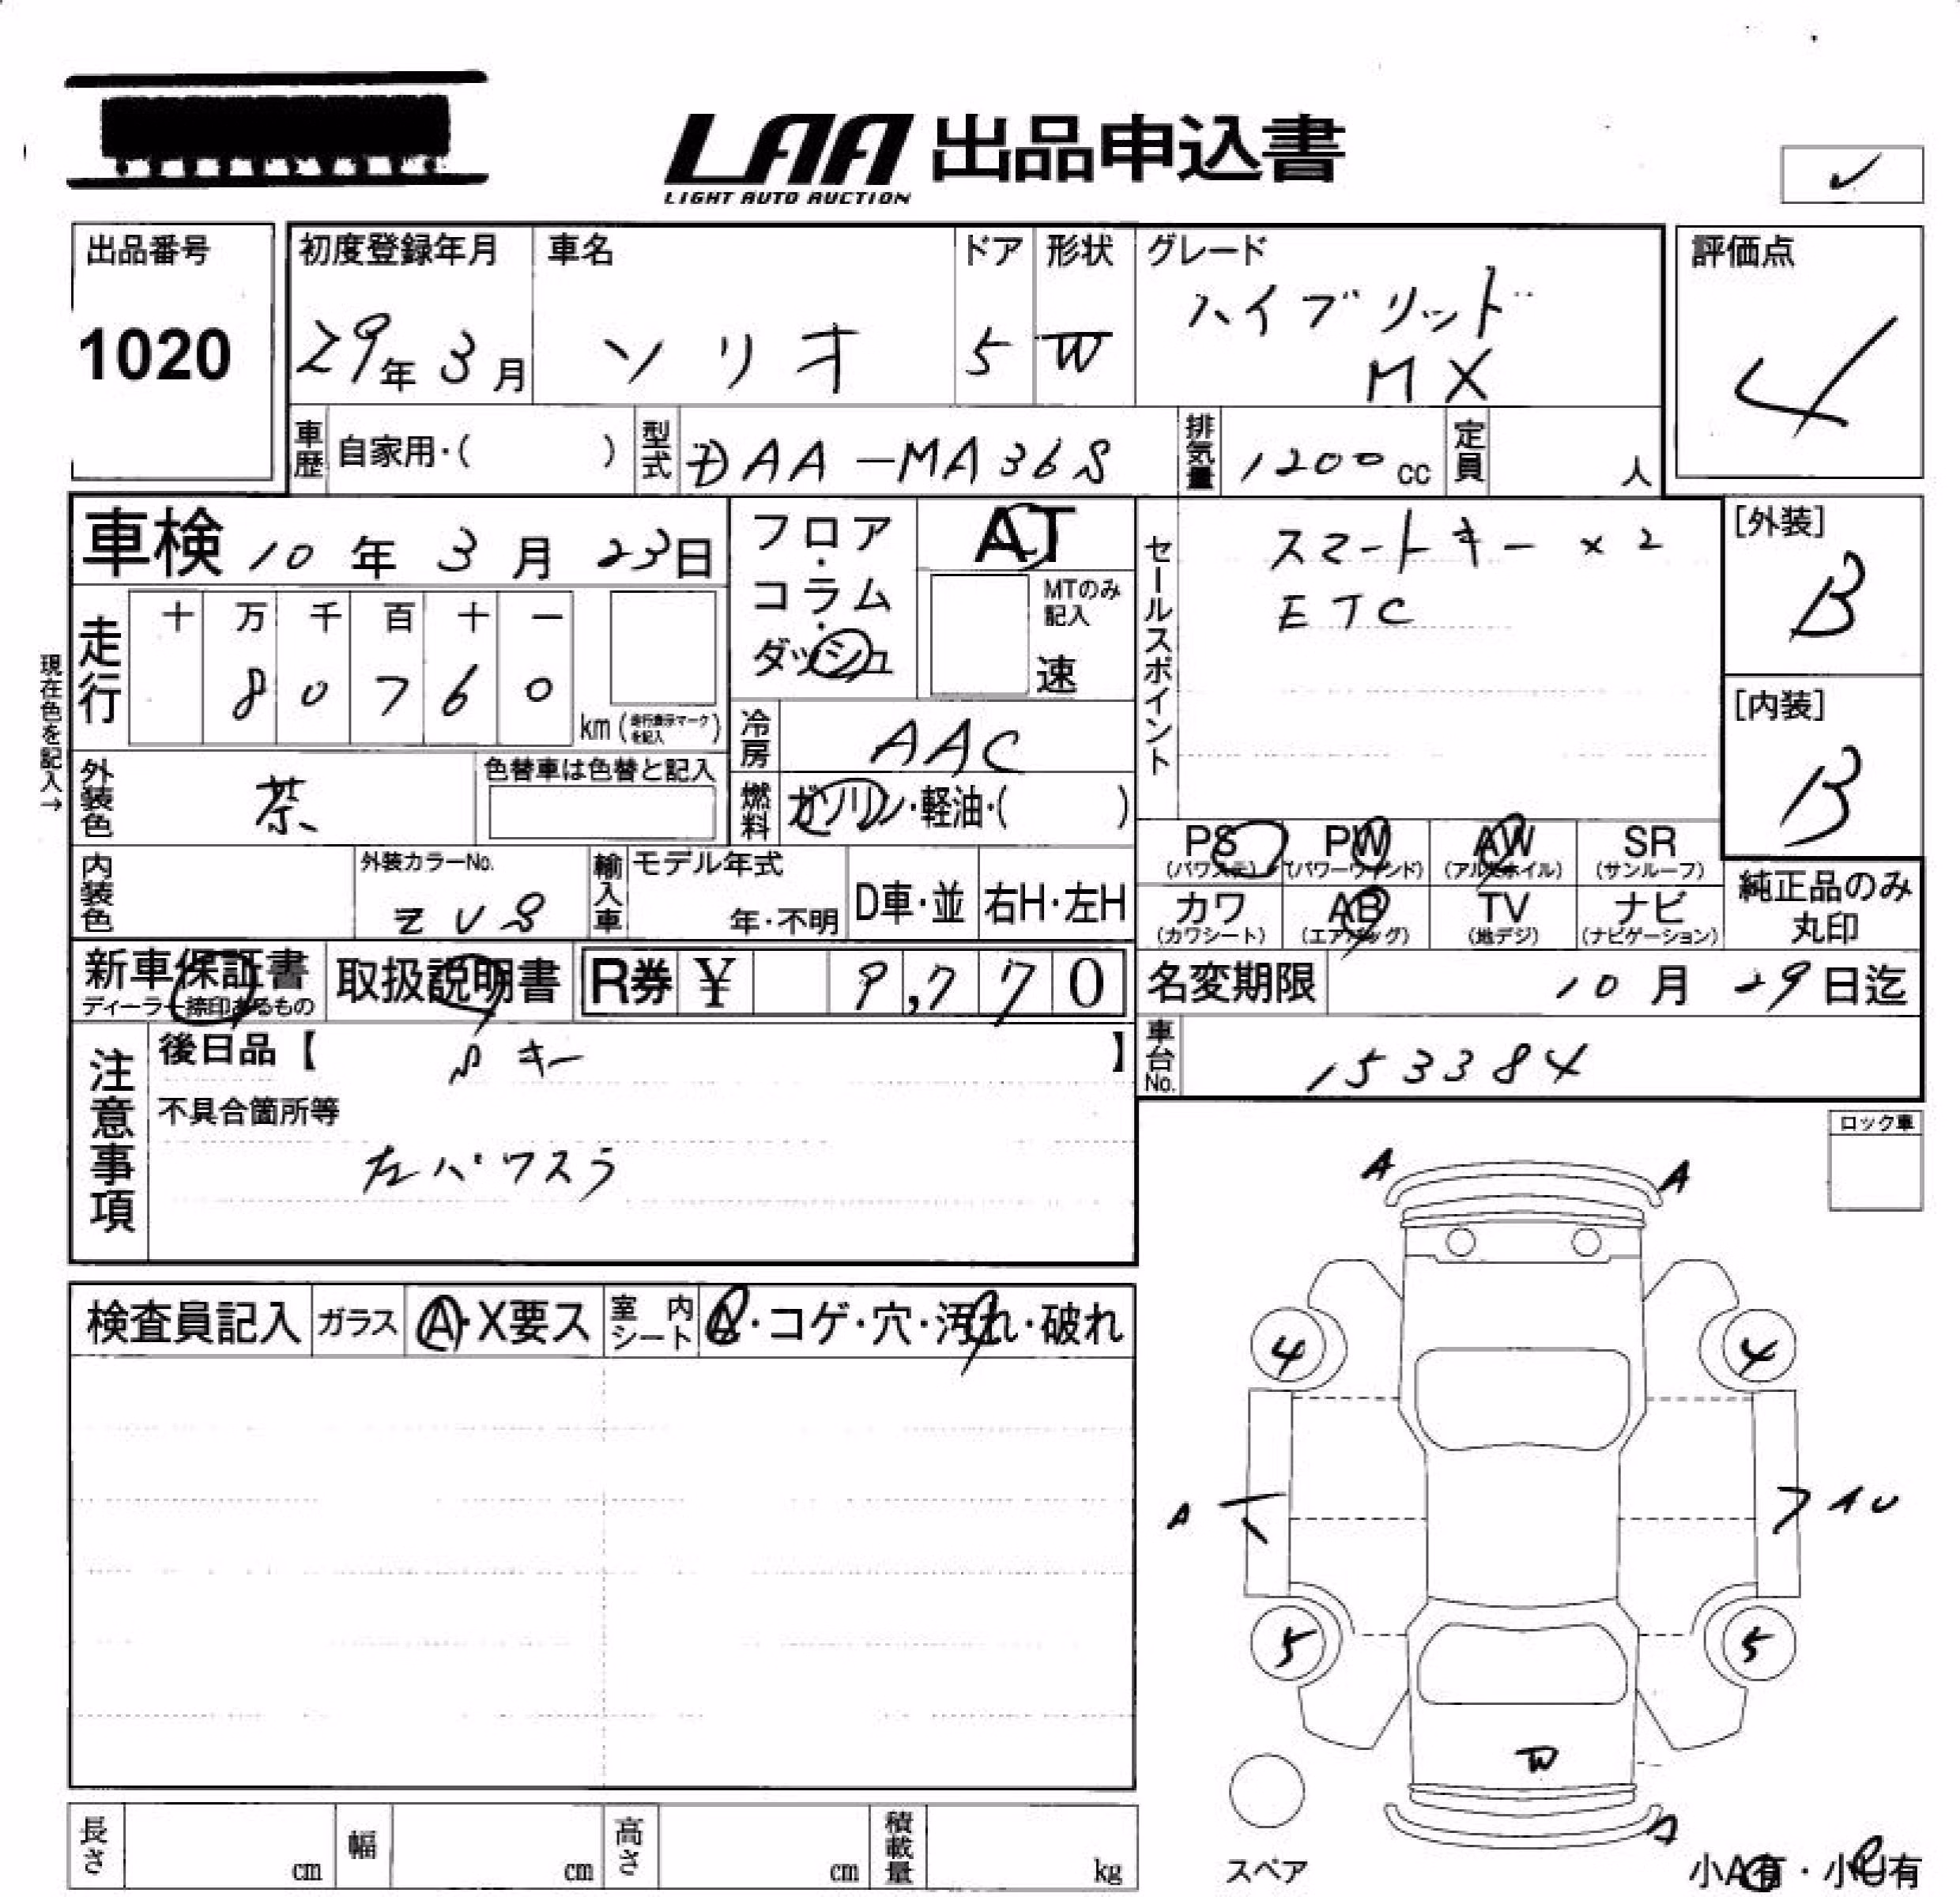 LAA 出品申込書
LIGHT AUTO AUCTION
出品番号
1020
初度登録年月
29年 3月
車名
ソリオ
ドア
5
形状
W
グレード
ハイブリッド
MX
評価点
4
車歴 自家用・( )
型式 DAA-MA36S
排気量 1200cc
定員 人
車検 10年 3月 23日
フロア・コラム・ダッシュ
AT
MTのみ記入
速
セールスポイント
スマートキー×2
ETC
[外装]
B
[内装]
B
現在色を記入→
走行
十 万 千 百 十 一
8 0 7 6 0
km (走行表示マークを記入)
冷房 AAC
外装色 茶
色替車は色替と記入
燃料 ガソリン・軽油・( )
PS (パワステ)
PW (パワーウインド)
AW (アルミホイル)
SR (サンルーフ)
カワ (カワシート)
AB (エアバッグ)
TV (地デジ)
ナビ (ナビゲーション)
純正品のみ丸印
内装色
外装カラーNo.
ZVS
輸入車
モデル年式
年・不明
D車・並
右H・左H
新車保証書
ディーラー捺印あるもの
取扱説明書
R券 ¥ 9,770
名変期限 10月 29日迄
車台No. 153384
注意事項
後日品【 キー 】
不具合箇所等
左パワスラ
ロック車
A A
検査員記入
ガラス A・X要ス
室内シート A・コゲ・穴・汚れ・破れ
4 4
A
5 5
W
スペア
長さ cm
幅 cm
高さ cm
積載量 kg
小A有・小U有